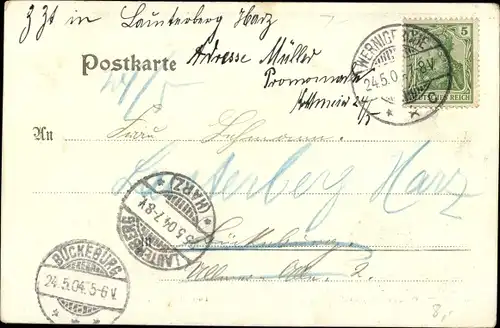 z Zt in Lauterberg Harz
Postkarte
Adresse Müller
Promenade
WERNIGERODE
24.5.0
8.V
5
DEUTSCHES REICH
An
Frau Lehmann.
Lauterberg Harz
LAUTERBERG
(HARZ)
5.04.7-8V.
in
Bückeburg
BÜCKEBURG
24.5.04.5-6V.
2.